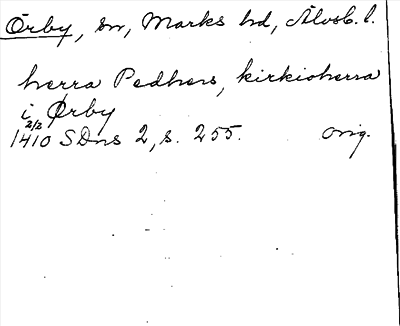 Örby, sn, Marks hd, Älvsb. l.
herra Pedhers, kirkioherra
i Ørby
2/2
1410 SDns 2, s. 255. orig.